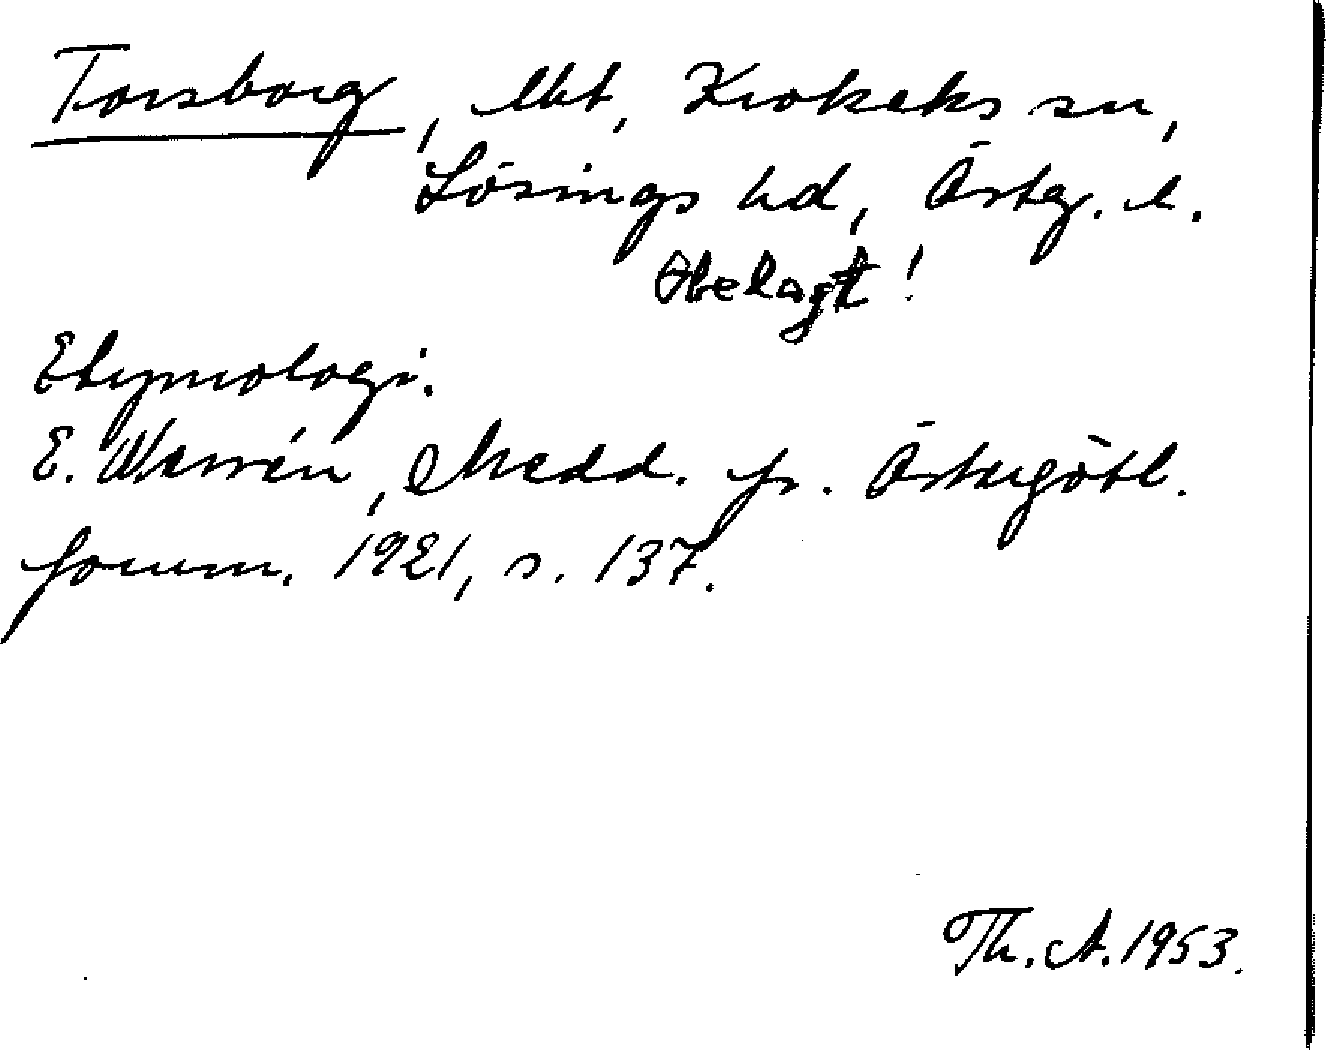 Torsborg, lht, Krokeks sn,
Lösings hd, Östg. l.
Obelagt!
Etymologi.
E. Wessén, Medd. fr. Östergötl.
fornm. 1921, s. 137.
Th. A. 1953.